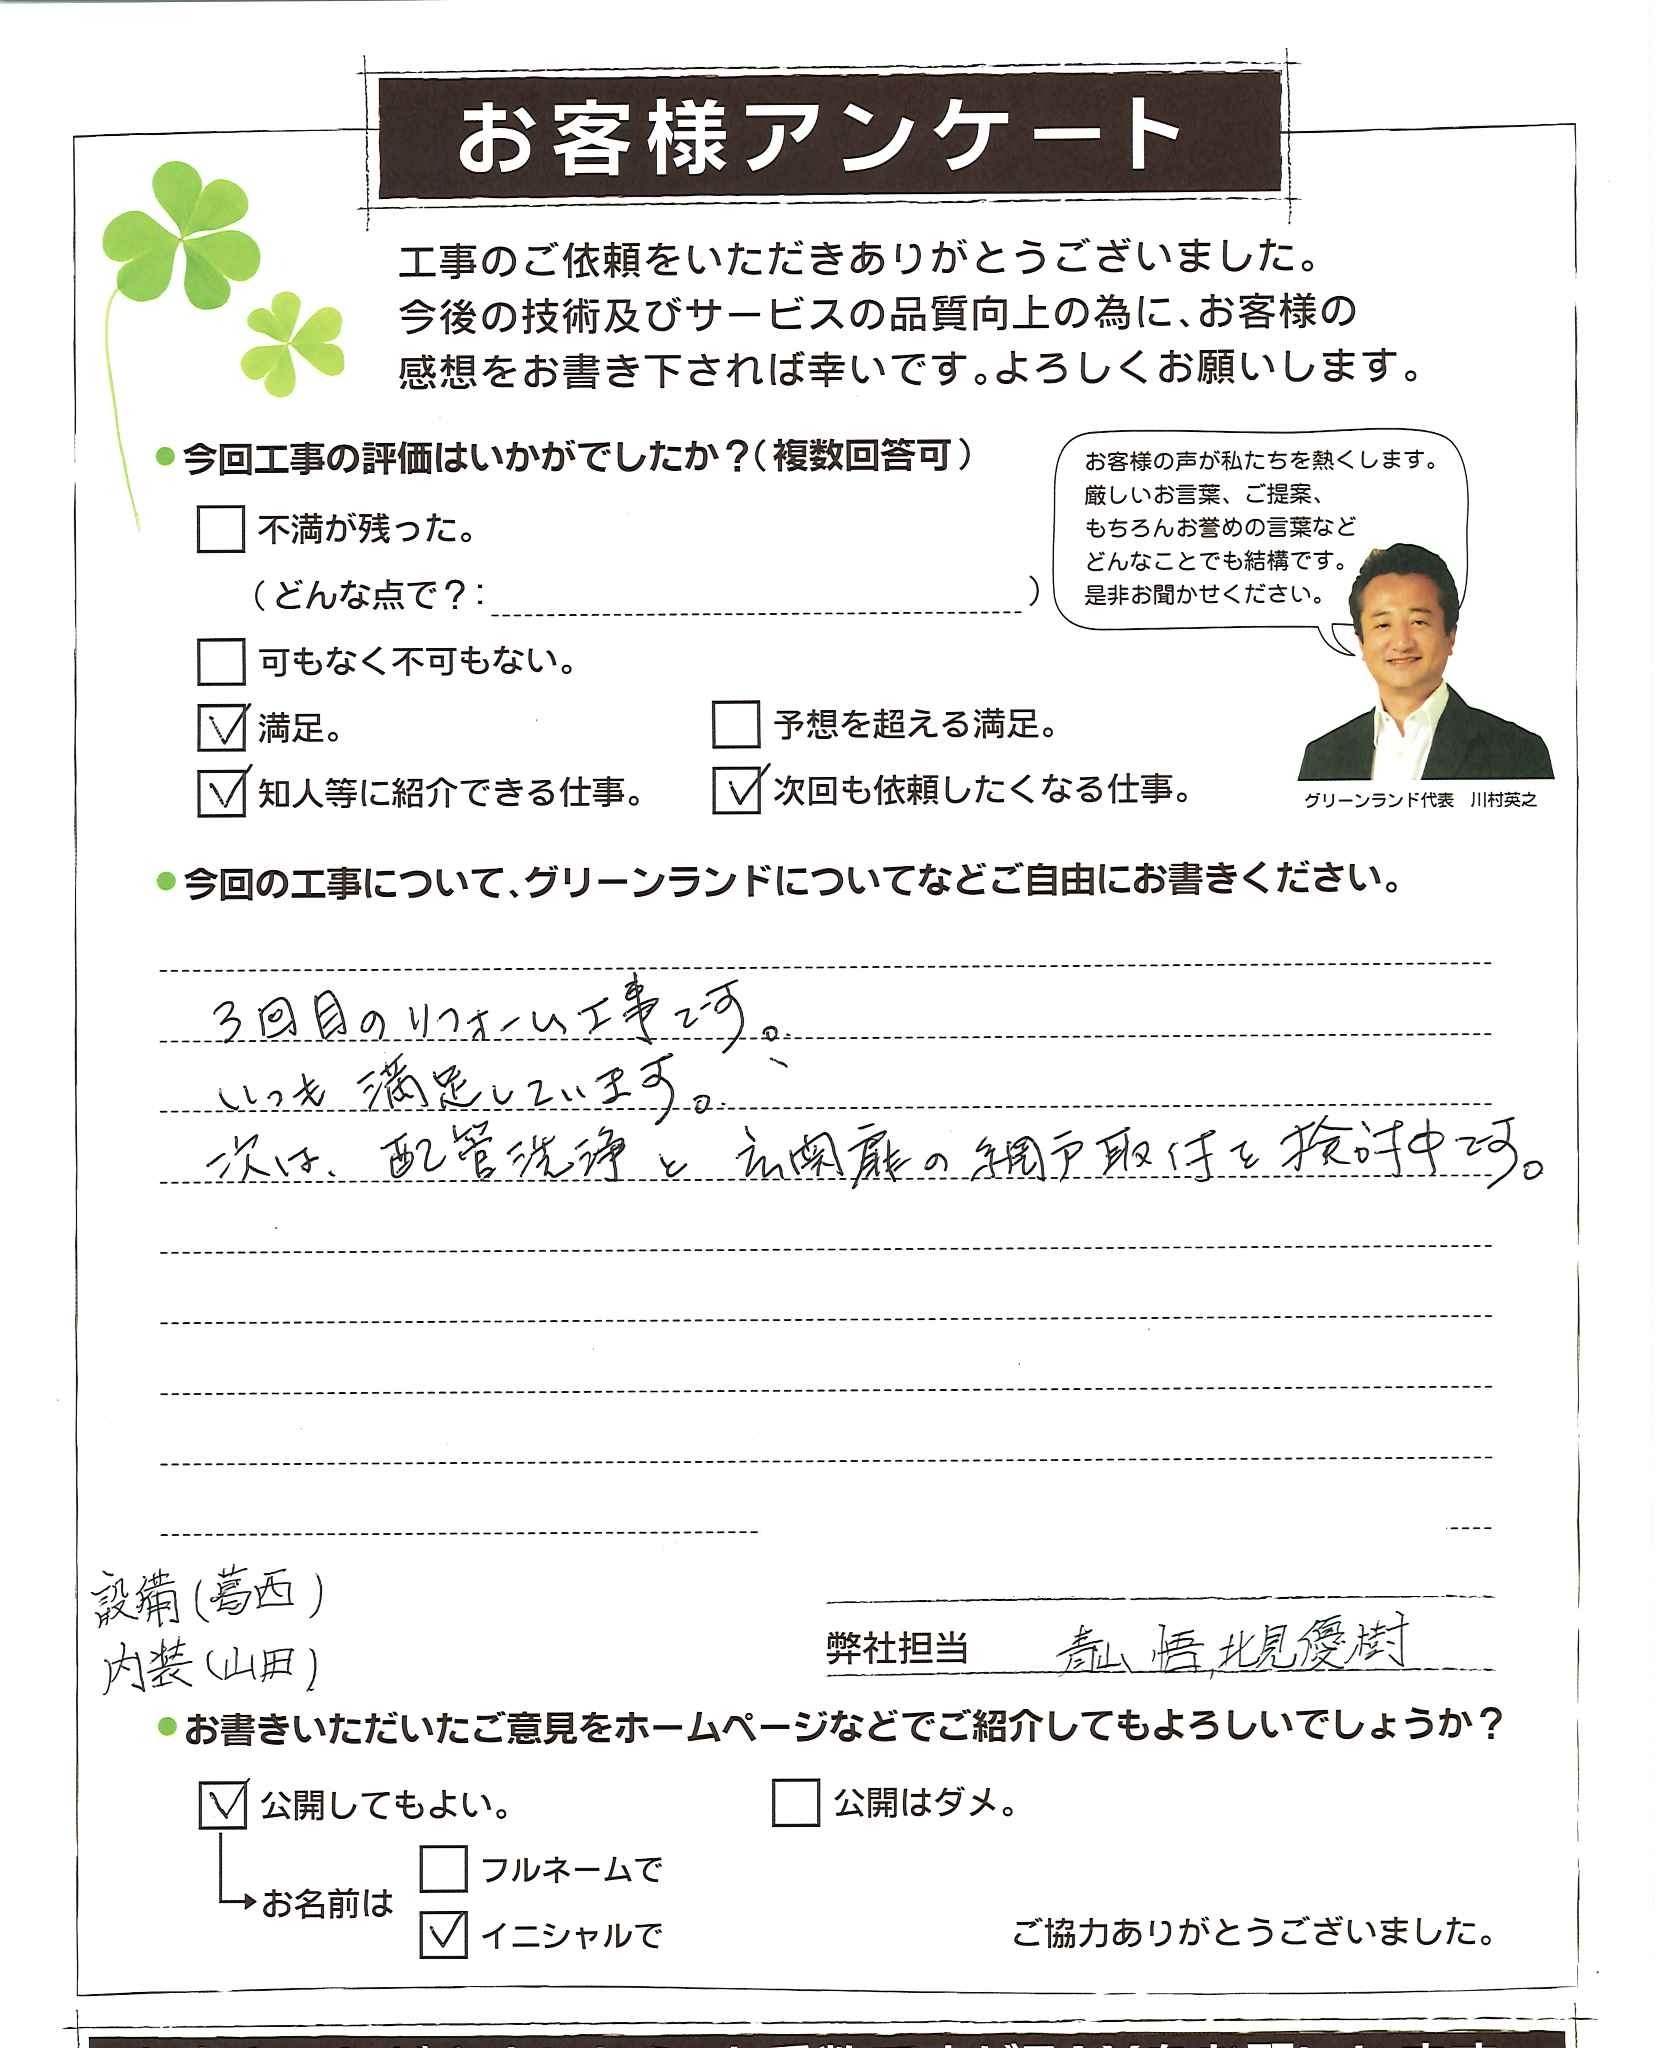 お客様アンケート
工事のご依頼をいただきありがとうございました。
今後の技術及びサービスの品質向上の為に、お客様の
感想をお書き下されば幸いです。よろしくお願いします。
●今回工事の評価はいかがでしたか?(複数回答可)
不満が残った。
(どんな点で?: )
可もなく不可もない。
満足。
予想を超える満足。
知人等に紹介できる仕事。
次回も依頼したくなる仕事。
お客様の声が私たちを熱くします。
厳しいお言葉、ご提案、
もちろんお誉めの言葉など
どんなことでも結構です。
是非お聞かせください。
グリーンランド代表 川村英之
●今回の工事について、グリーンランドについてなどご自由にお書きください。
3回目のリフォーム工事です。
いつも満足しています。
次は、配管洗浄と玄関扉の網戸取付を検討中です。
設備(葛西)
内装(山田)
弊社担当 青山 悟, 北見優樹
●お書きいただいたご意見をホームページなどでご紹介してもよろしいでしょうか?
公開してもよい。
公開はダメ。
お名前は
フルネームで
イニシャルで
ご協力ありがとうございました。